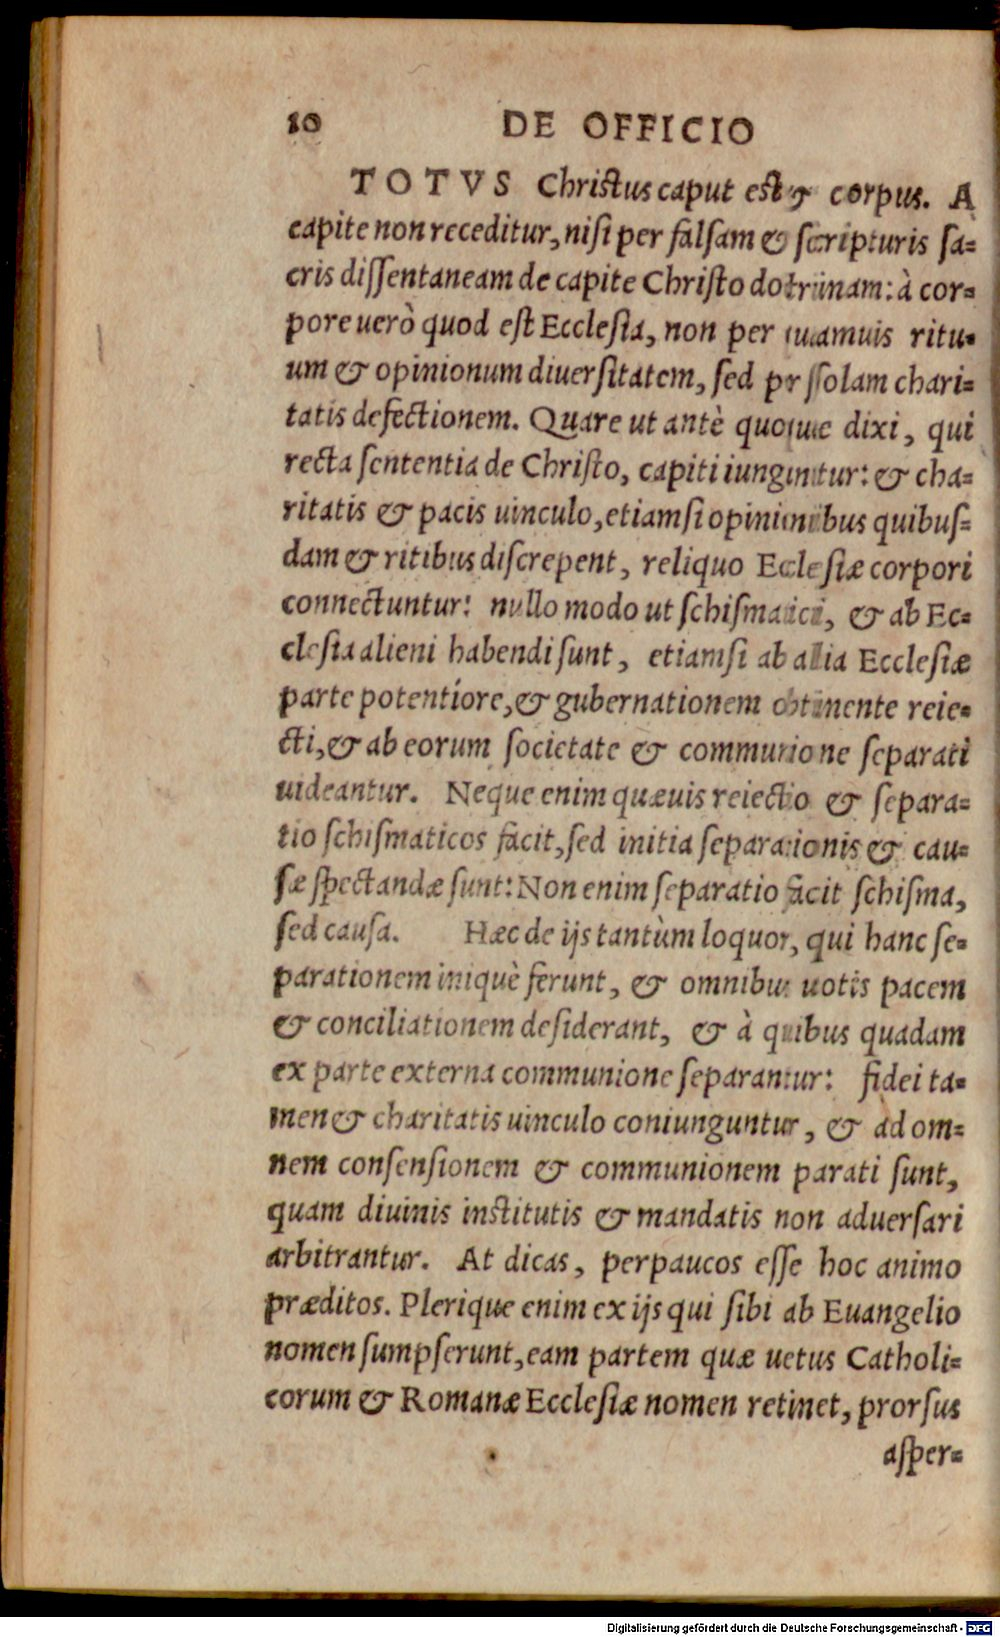 10 DE OFFICIO
TOTVS Christus caput est & corpus. A
capite non receditur, nisi per falsam & scripturis sa=
cris dissentaneam de capite Christo doctrinam: à cor=
pore uerò quod est Ecclesia, non per quamuis ritu=
um & opinionum diuersitatem, sed per solam chari=
tatis defectionem. Quare ut antè quoque dixi, qui
recta sententia de Christo, capiti iunguntur: & cha=
ritatis & pacis uinculo, etiamsi opinionibus quibus=
dam & ritibus discrepent, reliquo Ecclesiæ corpori
connectuntur: nullo modo ut schismatici, & ab Ec=
clesia alieni habendi sunt, etiamsi ab alia Ecclesiæ
parte potentíore, & gubernationem obtinente reie=
cti, & ab eorum societate & communione separati
uideantur. Neque enim quæuis reiectio & separa=
tio schismaticos facit, sed initia separationis & cau=
sæ spectandæ sunt: Non enim separatio facit schisma,
sed causa. Hæc de ijs tantùm loquor, qui hanc se=
parationem iniquè ferunt, & omnibus uotis pacem
& conciliationem desiderant, & à quibus quadam
ex parte externa communione separantur: fidei ta=
men & charitatis uinculo coniunguntur, & ad om=
nem consensionem & communionem parati sunt,
quam diuinis institutis & mandatis non aduersari
arbitrantur. At dicas, perpaucos esse hoc animo
præditos. Plerique enim ex ijs qui sibi ab Euangelio
nomen sumpserunt, eam partem quæ uetus Catholi=
corum & Romanæ Ecclesiæ nomen retinet, prorsus
asper=
Digitalisierung gefördert durch die Deutsche Forschungsgemeinschaft - DFG